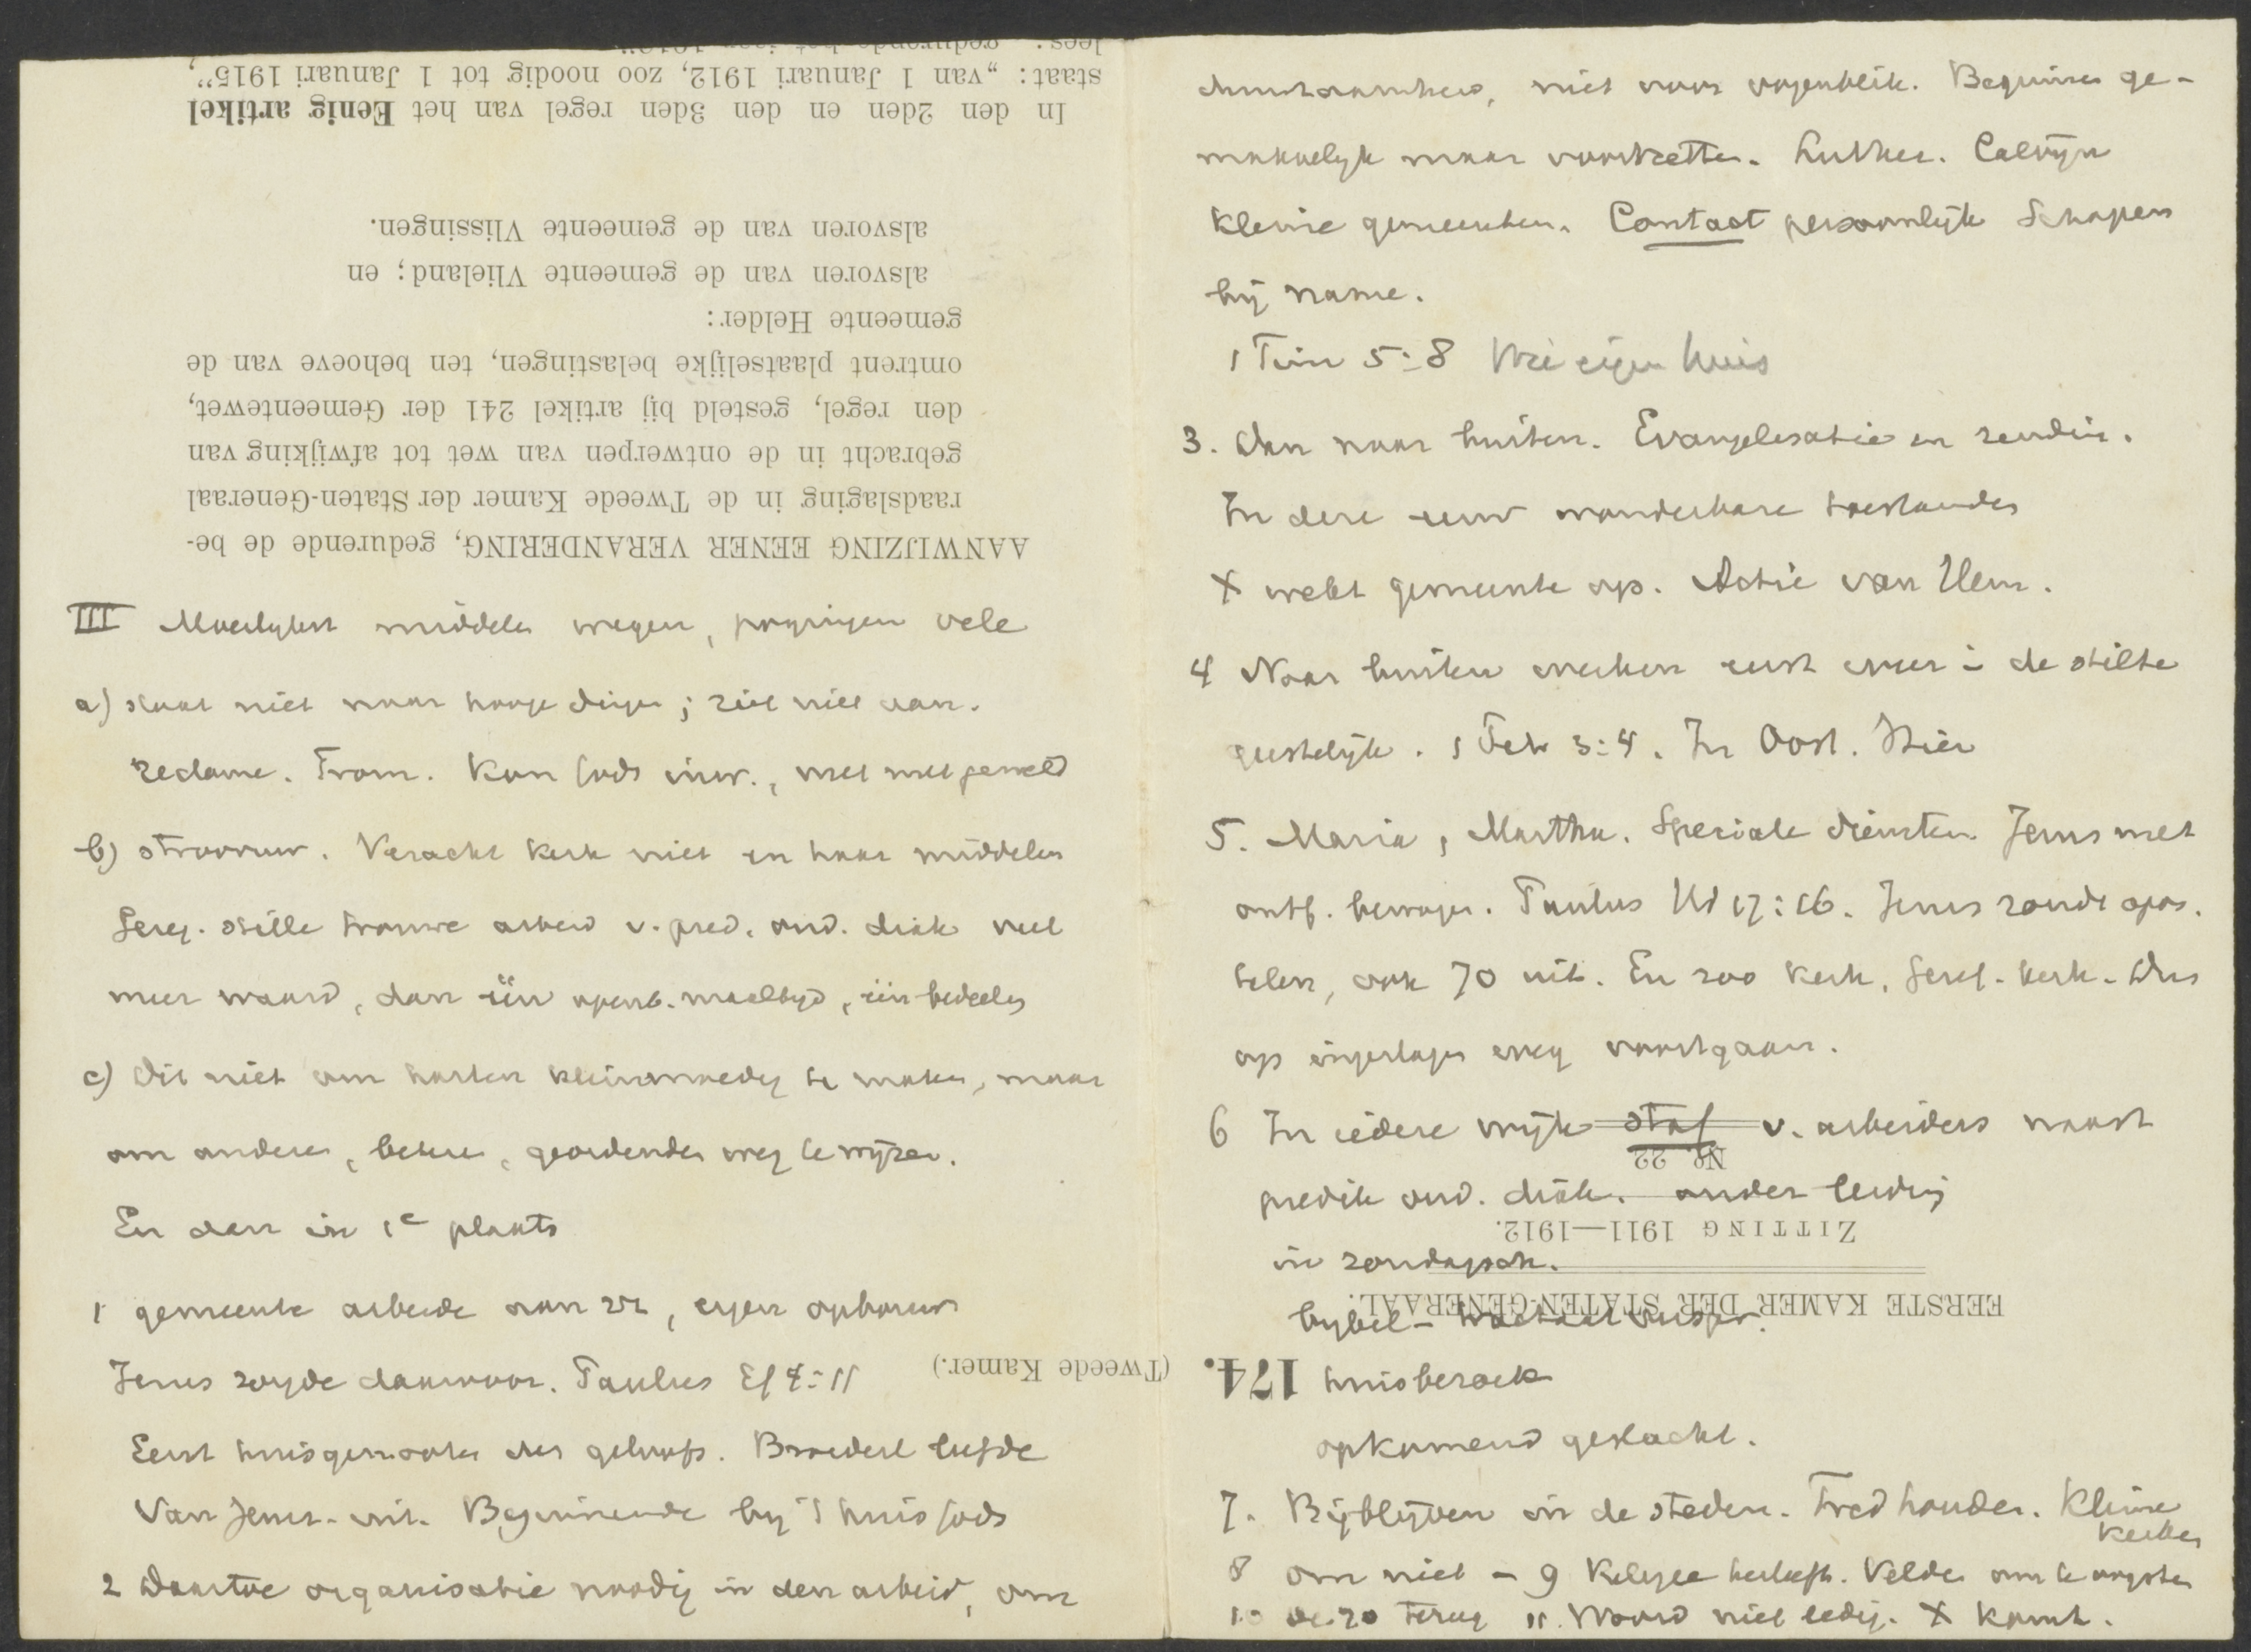 lees: „gedurende het jaar 1912”.
staat: „van 1 Januari 1912, zoo noodig tot 1 Januari 1915”,
In den 2den en den 3den regel van het Eenig artikel
alsvoren van de gemeente Vlissingen.
alsvoren van de gemeente Vlieland; en
gemeente Helder:
omtrent plaatselijke belastingen, ten behoeve van de
den regel, gesteld bij artikel 241 der Gemeentewet,
gebracht in de ontwerpen van wet tot afwijking van
raadslaging in de Tweede Kamer der Staten-Generaal
AANWIJZING EENER VERANDERING, gedurende de be-
III Moeilijkst middelen wegen, pogingen vele
a) staat niet naar hooge dingen; ziet niet aan.
reclame. Trom. Kon Gods inw., niet met geweld
b) stroovuur. Veracht kerk niet en haar middelen
Geref. stille trouwe arbeid v. pred. oud. diak veel
meer waard, dan één openb. maaltijd, één bedeeling
c) Dit niet om harten kleinmoedig te maken, maar
om andere, betere, geordende weg te wijzen.
En dan in 1e plaats
1 gemeente arbeide aan zich, eigen opbouw
Jezus zorgde daarvoor. Paulus Ef 4:11
Eerst huisgenooten des geloofs. Broederl liefde
Van Jeruz. uit. Beginnende bij 't huis Gods
2 Daartoe organisatie noodig in den arbeid, om
(Tweede Kamer.)
duurzaamheid, niet voor oogenblik. Beginnen ge-
makkelijk maar voortzetten. Luther. Calvijn
kleine gemeenten. Contact persoonlijk Schapen
bij name.
1 Tim 5:8 Wie eigen huis
3. Dan naar buiten. Evangelisatie en zending.
In deze eeuw wonderbare toestanden
X wekt gemeente op. Actie van Hem.
4 Naar buiten werken eerst weer in de stilte
geestelijk. 1 Petr 3:4. In Oost. Hier
5. Maria, Martha. Speciale diensten. Jezus met
ontf. bewogen. Paulus Hd 17:16. Jezus zond apos.
telen, ook 70 uit. En zoo kerk, Geref. kerk. Dus
op ingeslagen weg voortgaan.
6 In iedere wijk staf v. arbeiders naast
No. 22
predik oud. diak. onder leiding
ZITTING 1911—1912.
in zondagsch.
EERSTE KAMER DER STATEN-GENERAAL.
bybel-
174.
huisbezoek
opkomend geslacht.
7. Bijblijven in de steden. Tred houden. Kleine
kerken
8 om niet - 9 Religie herleeft. Velden om te oogsten
10 terug 11. Woord niet ledig. X komt.